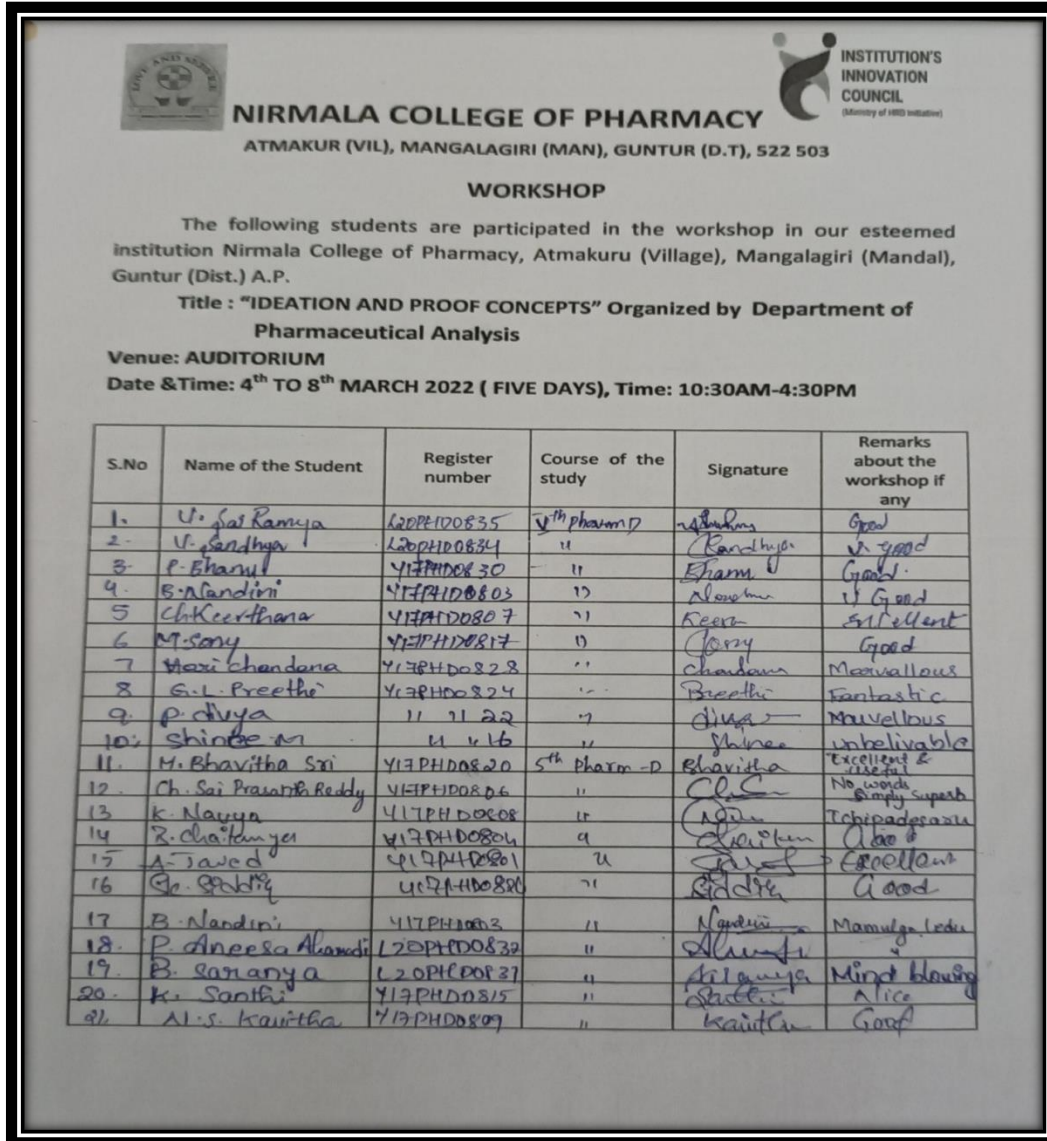 LOVE AND SERVE
INSTITUTION'S
INNOVATION
COUNCIL
(Ministry of HRD Initiative)
NIRMALA COLLEGE OF PHARMACY
ATMAKUR (VIL), MANGALAGIRI (MAN), GUNTUR (D.T), 522 503
WORKSHOP
The following students are participated in the workshop in our esteemed
institution Nirmala College of Pharmacy, Atmakuru (Village), Mangalagiri (Mandal),
Guntur (Dist.) A.P.
Title : "IDEATION AND PROOF CONCEPTS" Organized by Department of
Pharmaceutical Analysis
Venue: AUDITORIUM
Date &Time: 4th TO 8th MARCH 2022 ( FIVE DAYS), Time: 10:30AM-4:30PM
S.No Name of the Student Register number Course of the study Signature Remarks about the workshop if any
1. V. Sai Ramya L20PHD0835 Vth Pharm D Good
2. V. Sandhya L20PHD0834 " Sandhya V. good
3. P. Bhanu Y17PHD0830 " Bhanu Good.
4. B. Nandini Y17PHD0803 " Good
5 Ch. Keerthana Y17PHD0807 " Keern Excellent
6 M. Sony Y17PHD0817 " Sony Good
7 Hari chandana Y17PHD0828 " Chandana Marvallous
8 G.L. Preethi Y17PHD0824 " Preethi Fantastic
9. P. divya " " 22 " divya Mauvellous
10. Shinee M " " 16 " Shinee unbelivable
11. M. Bhavitha Sri Y17PHD0820 5th Pharm-D Bhavitha Excellent & useful
12. Ch. Sai Prasanth Reddy Y17PHD0806 " No words simply superb
13 K. Navya Y17PHD0808 " Ichipadesaru
14 Chaitanya Y17PHD0804 "
15 A. Javed Y17PHD0801 " Excellent
16 Siddiq " Siddiq Good
17 B. Nandini " Nandini Mamulga ledu
18. P. Aneesa L20PHD0832 "
19. B. Saranya L20PHD0831 " Saranya Mind blowing
20. K. Santhi Y17PHD0815 " Santhi Nice
21. N.S. Kavitha Y17PHD0809 " Kavitha Good